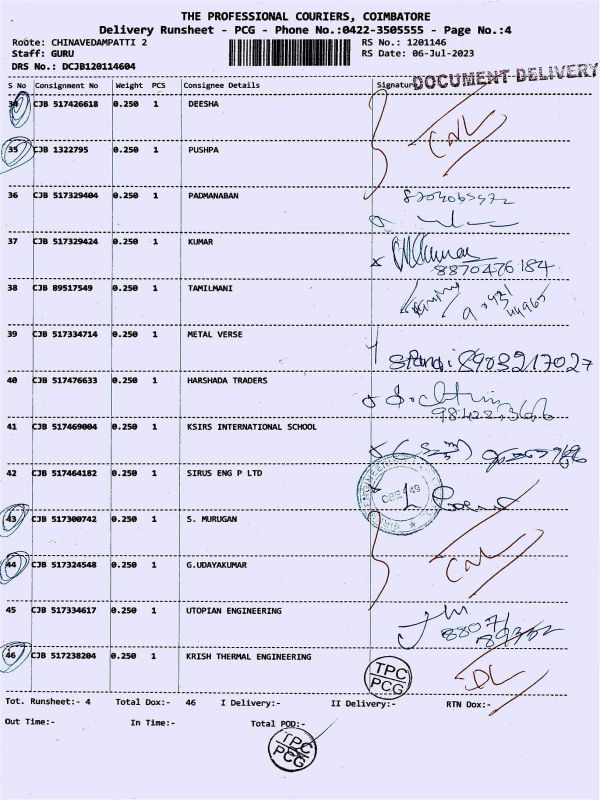 THE PROFESSIONAL COURIERS, COIMBATORE
Delivery Runsheet - PCG - Phone No.:0422-3505555 - Page No.:4
Route: CHINAVEDAMPATTI 2 RS No.: 1201146
Staff: GURU RS Date: 06-Jul-2023
DRS No.: DCJB120114604
DOCUMENT DELIVERY
S No Consignment No Weight PCS Consignee Details Signature
34 CJB 517426618 0.250 1 DEESHA
CNL
35 CJB 1322795 0.250 1 PUSHPA
36 CJB 517329404 0.250 1 PADMANABAN
37 CJB 517329424 0.250 1 KUMAR
Kumar
8870476184
38 CJB 89517549 0.250 1 TAMILMANI
39 CJB 517334714 0.250 1 METAL VERSE
8903217027
40 CJB 517476633 0.250 1 HARSHADA TRADERS
41 CJB 517469004 0.250 1 KSIRS INTERNATIONAL SCHOOL
42 CJB 517464182 0.250 1 SIRUS ENG P LTD
CBE-49
43 CJB 517300742 0.250 1 S. MURUGAN
44 CJB 517324548 0.250 1 G.UDAYAKUMAR
CNL
45 CJB 517334617 0.250 1 UTOPIAN ENGINEERING
46 CJB 517238204 0.250 1 KRISH THERMAL ENGINEERING
TPC
PCG
DL
Tot. Runsheet:- 4 Total Dox:- 46 I Delivery:- II Delivery:- RTN Dox:-
Out Time:- In Time:- Total POD:-
TPC
PCG